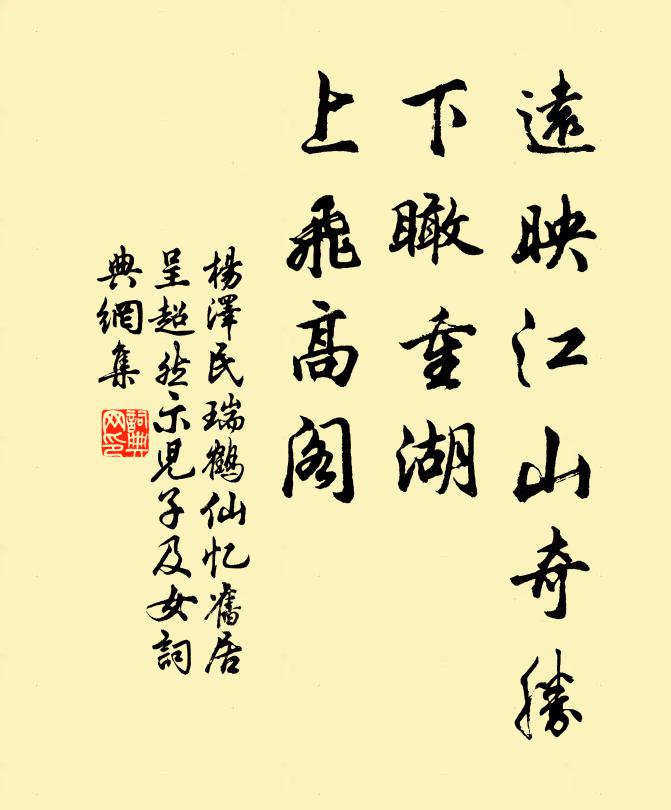 遠映江山奇勝
下瞰重湖
上飛高阁
楊澤民瑞鶴仙忆舊居
呈超然示児子及女詞
典網集
詞典网印